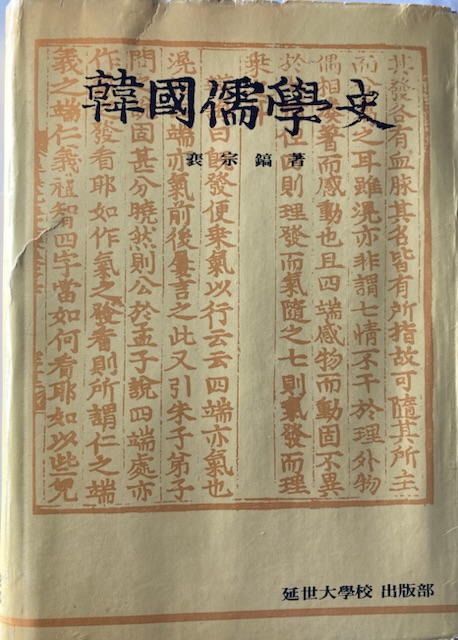 韓國儒學史
裵宗鎬 著
其發各有血脉其名皆有所指故可隨其所主
而 之耳雖滉亦非謂七情不干於理外物
偶相湊著而感動也且四端感物而動固不異
於 四則理發而氣隨之七則氣發而理
乘
曰旣發便乘氣以行云云四端亦氣也
滉 端亦氣前後屢言之此又引朱子弟子
問 固甚分曉然則公於孟子說四端處亦
作 發看耶如作氣之發看則所謂仁之端
義之端仁義禮智四字當如何看耶如以些兒
延世大學校 出版部